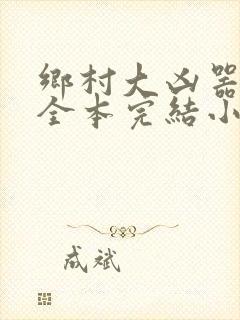 鄉村大凶器
全本完結小
成斌